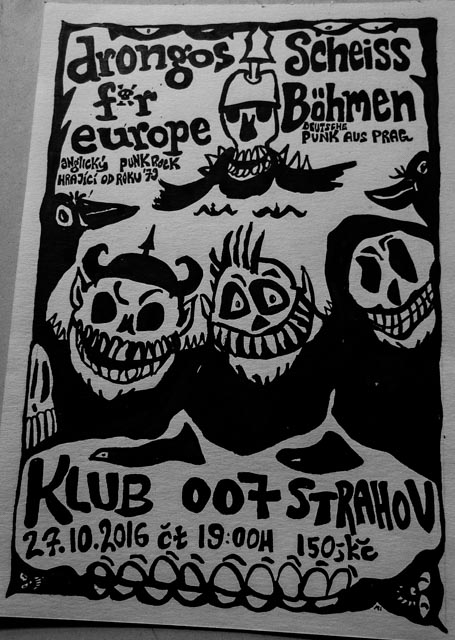 drongos
för
europe
anglický punk rock
hrající od roku '79
Scheiss
Böhmen
deutsche
punk aus Prag
Klub 007 Strahov
27.10.2016 čt 19:00H 150,-kč